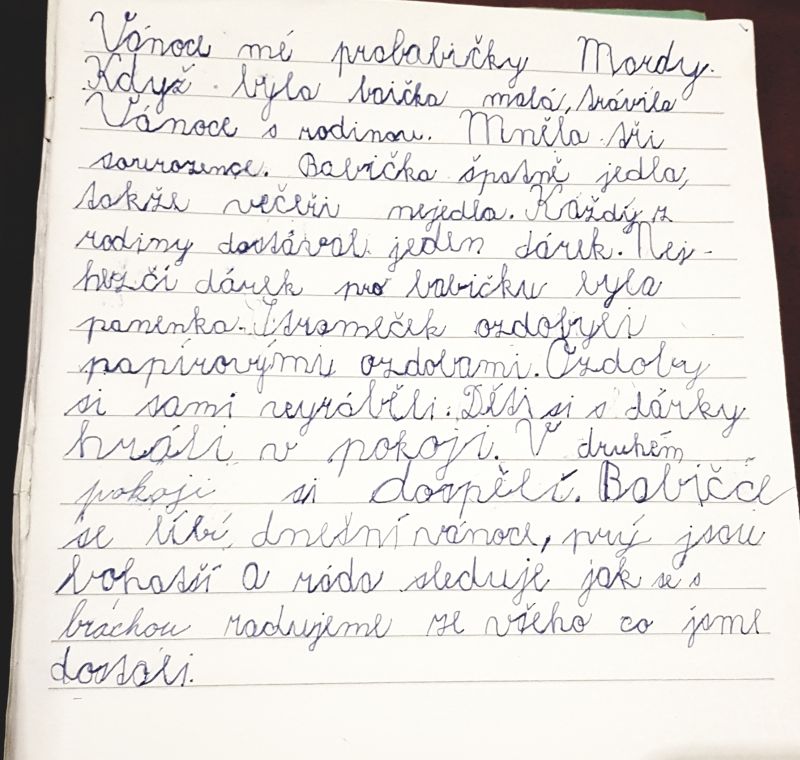 Vánoce mé prababičky Mardy.
Když byla baička malá, trávila
Vánoce s rodinou. Mněla tři
sourozence. Babička špatně jedla,
takže večeři nejedla. Každý z
rodiny dostával jeden dárek. Nej-
hezčí dárek pro babičku byla
panenka. Stromeček ozdobyli
papírovými ozdobami. Ozdoby
si sami vyráběli. Děti si s dárky
hráli v pokoji. V druhém
pokoji si dospělí. Babičče
se líbí dnešní vánoce, prý jsou
bohatší a ráda sleduje jak se s
bráchou radujeme ze všeho co jsme
dostali.